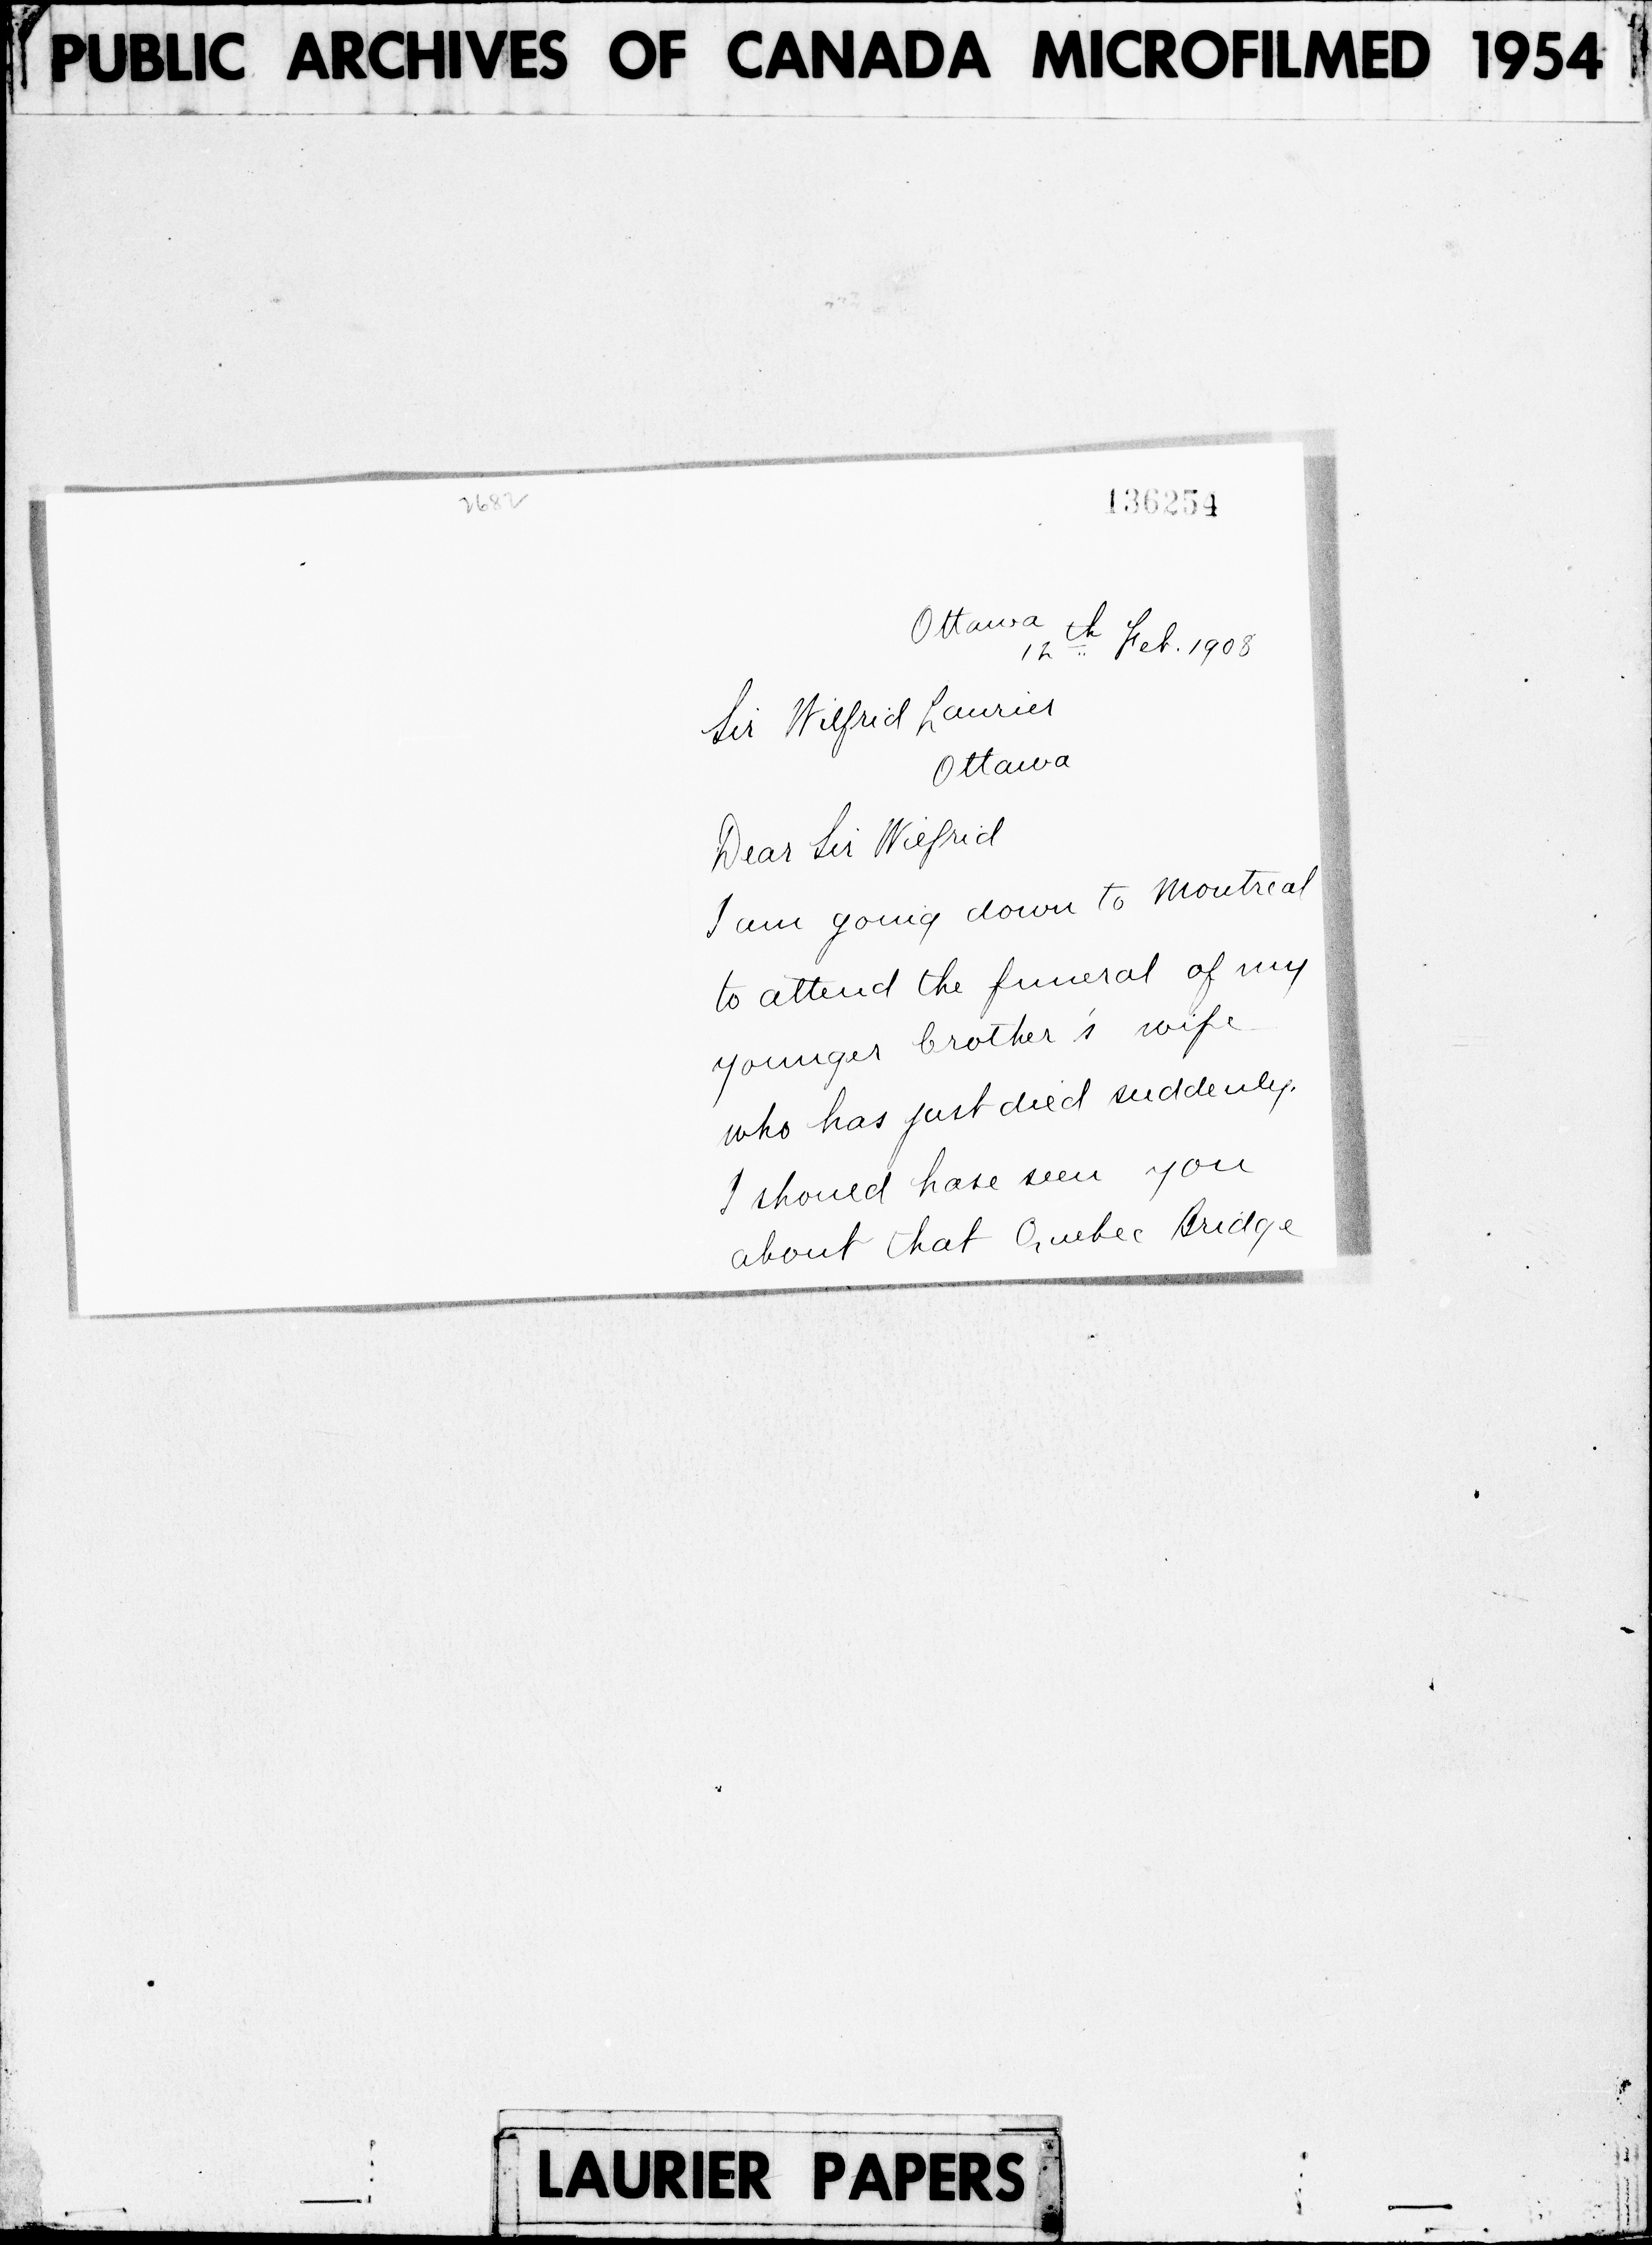 PUBLIC ARCHIVES OF CANADA MICROFILMED 1954
2682
136254
Ottawa
12th Feb. 1908
Sir Wilfrid Laurier
Ottawa
Dear Sir Wilfrid
I am going down to Montreal
to attend the funeral of my
younger brother's wife
who has just died suddenly.
I should have seen you
about that Quebec Bridge
LAURIER PAPERS